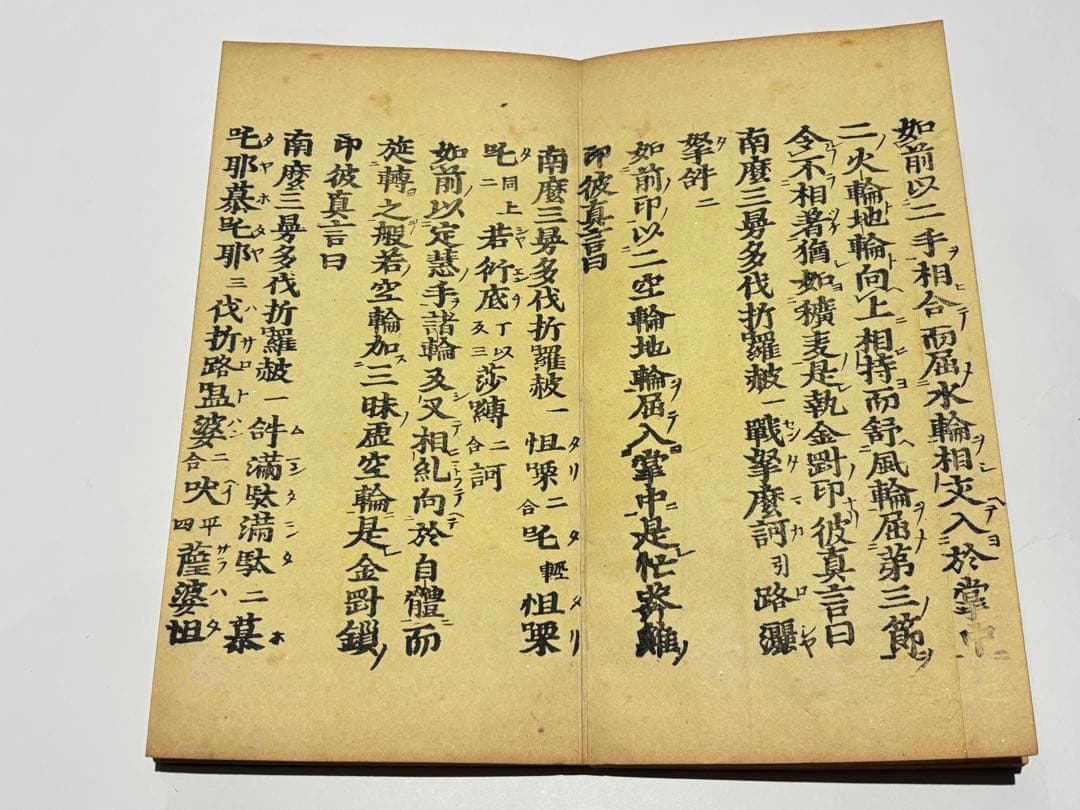 如前以二手相合而屈水輪相交入於掌中
二火輪地輪向上相持而舒風輪屈第三節
令不相著猶如穬麦是執金剛印彼真言曰
南麼三曼多伐折羅赧一戰拏麼訶引路灑
拏𤙖二
如前印以二空輪地輪屈入掌中是忙莽雞
印彼真言曰
南麼三曼多伐折羅赧一怛㗚二合吒輕怛㗚
吒同上二若衍底丁以反三莎縛二合訶
如前以定慧手諸輪反叉相糺向於自體而
旋轉之般若空輪加三昧虚空輪是金剛鎖
印彼真言曰
南麼三曼多伐折羅赧一𤙖滿馱滿馱二慕
吒耶慕吒耶三伐折路嗢婆二合吠平四薩婆怛